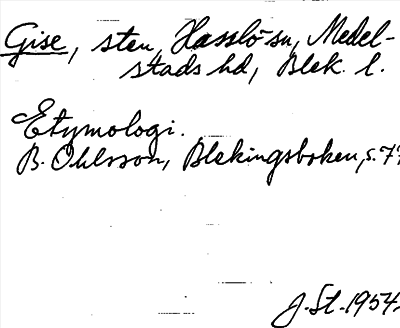 Gise, sten, Hasslö sn, Medel-
stads hd, Blek. l.
Etymologi.
B. Ohlsson, Blekingsboken, s. 77
J. St. 1954.